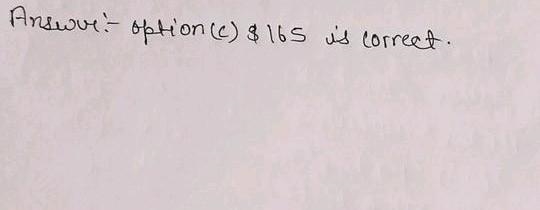 Answer:- option (c) $165 is correct.